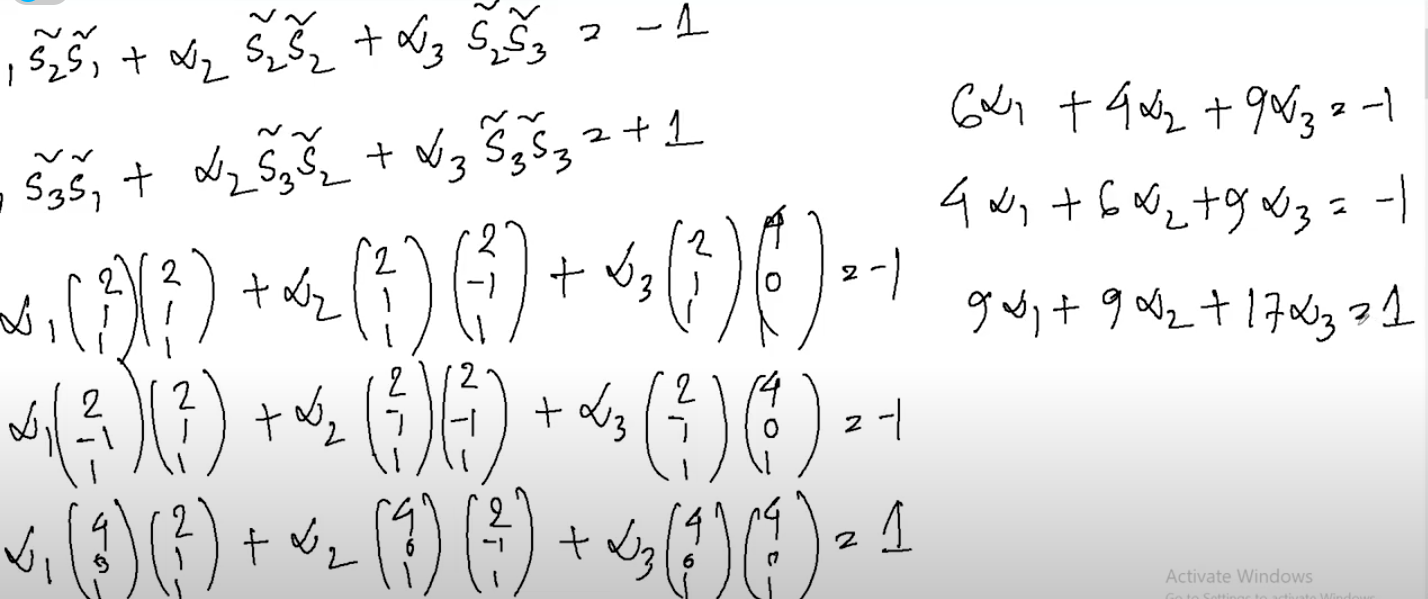 ₁ s̃₂s̃₁ + α₂ s̃₂s̃₂ + α₃ s̃₂s̃₃ = -1
s̃₃s̃₁ + α₂ s̃₃s̃₂ + α₃ s̃₃s̃₃ = +1
α₁ (2 1 1) (2 1 1) + α₂ (2 1 1) (2 -1 1) + α₃ (2 1 1) (4 0 1) = -1
α₁ (2 -1 1) (2 1 1) + α₂ (2 -1 1) (2 -1 1) + α₃ (2 -1 1) (4 0 1) = -1
α₁ (4 0 1) (2 1 1) + α₂ (4 0 1) (2 -1 1) + α₃ (4 0 1) (4 0 1) = 1
6α₁ + 4α₂ + 9α₃ = -1
4α₁ + 6α₂ + 9α₃ = -1
9α₁ + 9α₂ + 17α₃ = 1
Activate Windows
Go to Settings to activate Windows